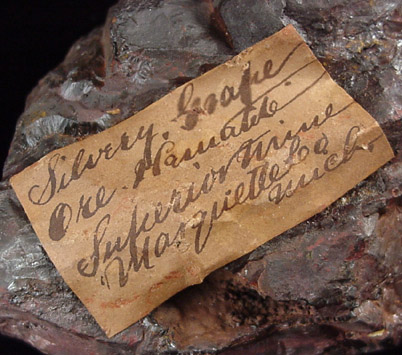 Silvery. Grape
Ore. Hematite.
Superior Mine
Marquette Co
Mich.